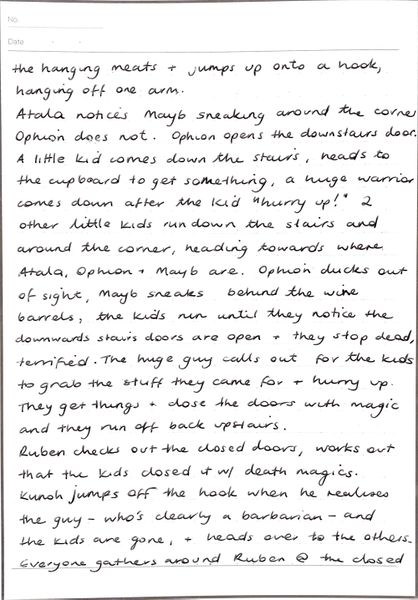 No.
Date
the hanging meats + jumps up onto a hook,
hanging off one arm.
Atala notices Mayb sneaking around the corne
Ophion does not. Ophion opens the downstairs door.
A little kid comes down the stairs, heads to
the cupboard to get something, a huge warrior
comes down after the kid "hurry up!" 2
other little kids run down the stairs and
around the corner, heading towards where
Atala, Ophion + Mayb are. Ophion ducks out
of sight, Mayb sneaks behind the wine
barrels, the kids run until they notice the
downwards stairs doors are open + they stop dead,
terrified. The huge guy calls out for the kids
to grab the stuff they came for + hurry up.
They get things + close the doors with magic
and they run off back upstairs.
Ruben checks out the closed doors, works out
that the kids closed it w/ death magics.
jumps off the hook when he realises
the guy - who's clearly a barbarian - and
the kids are gone, + heads over to the others.
Everyone gathers around Ruben @ the closed